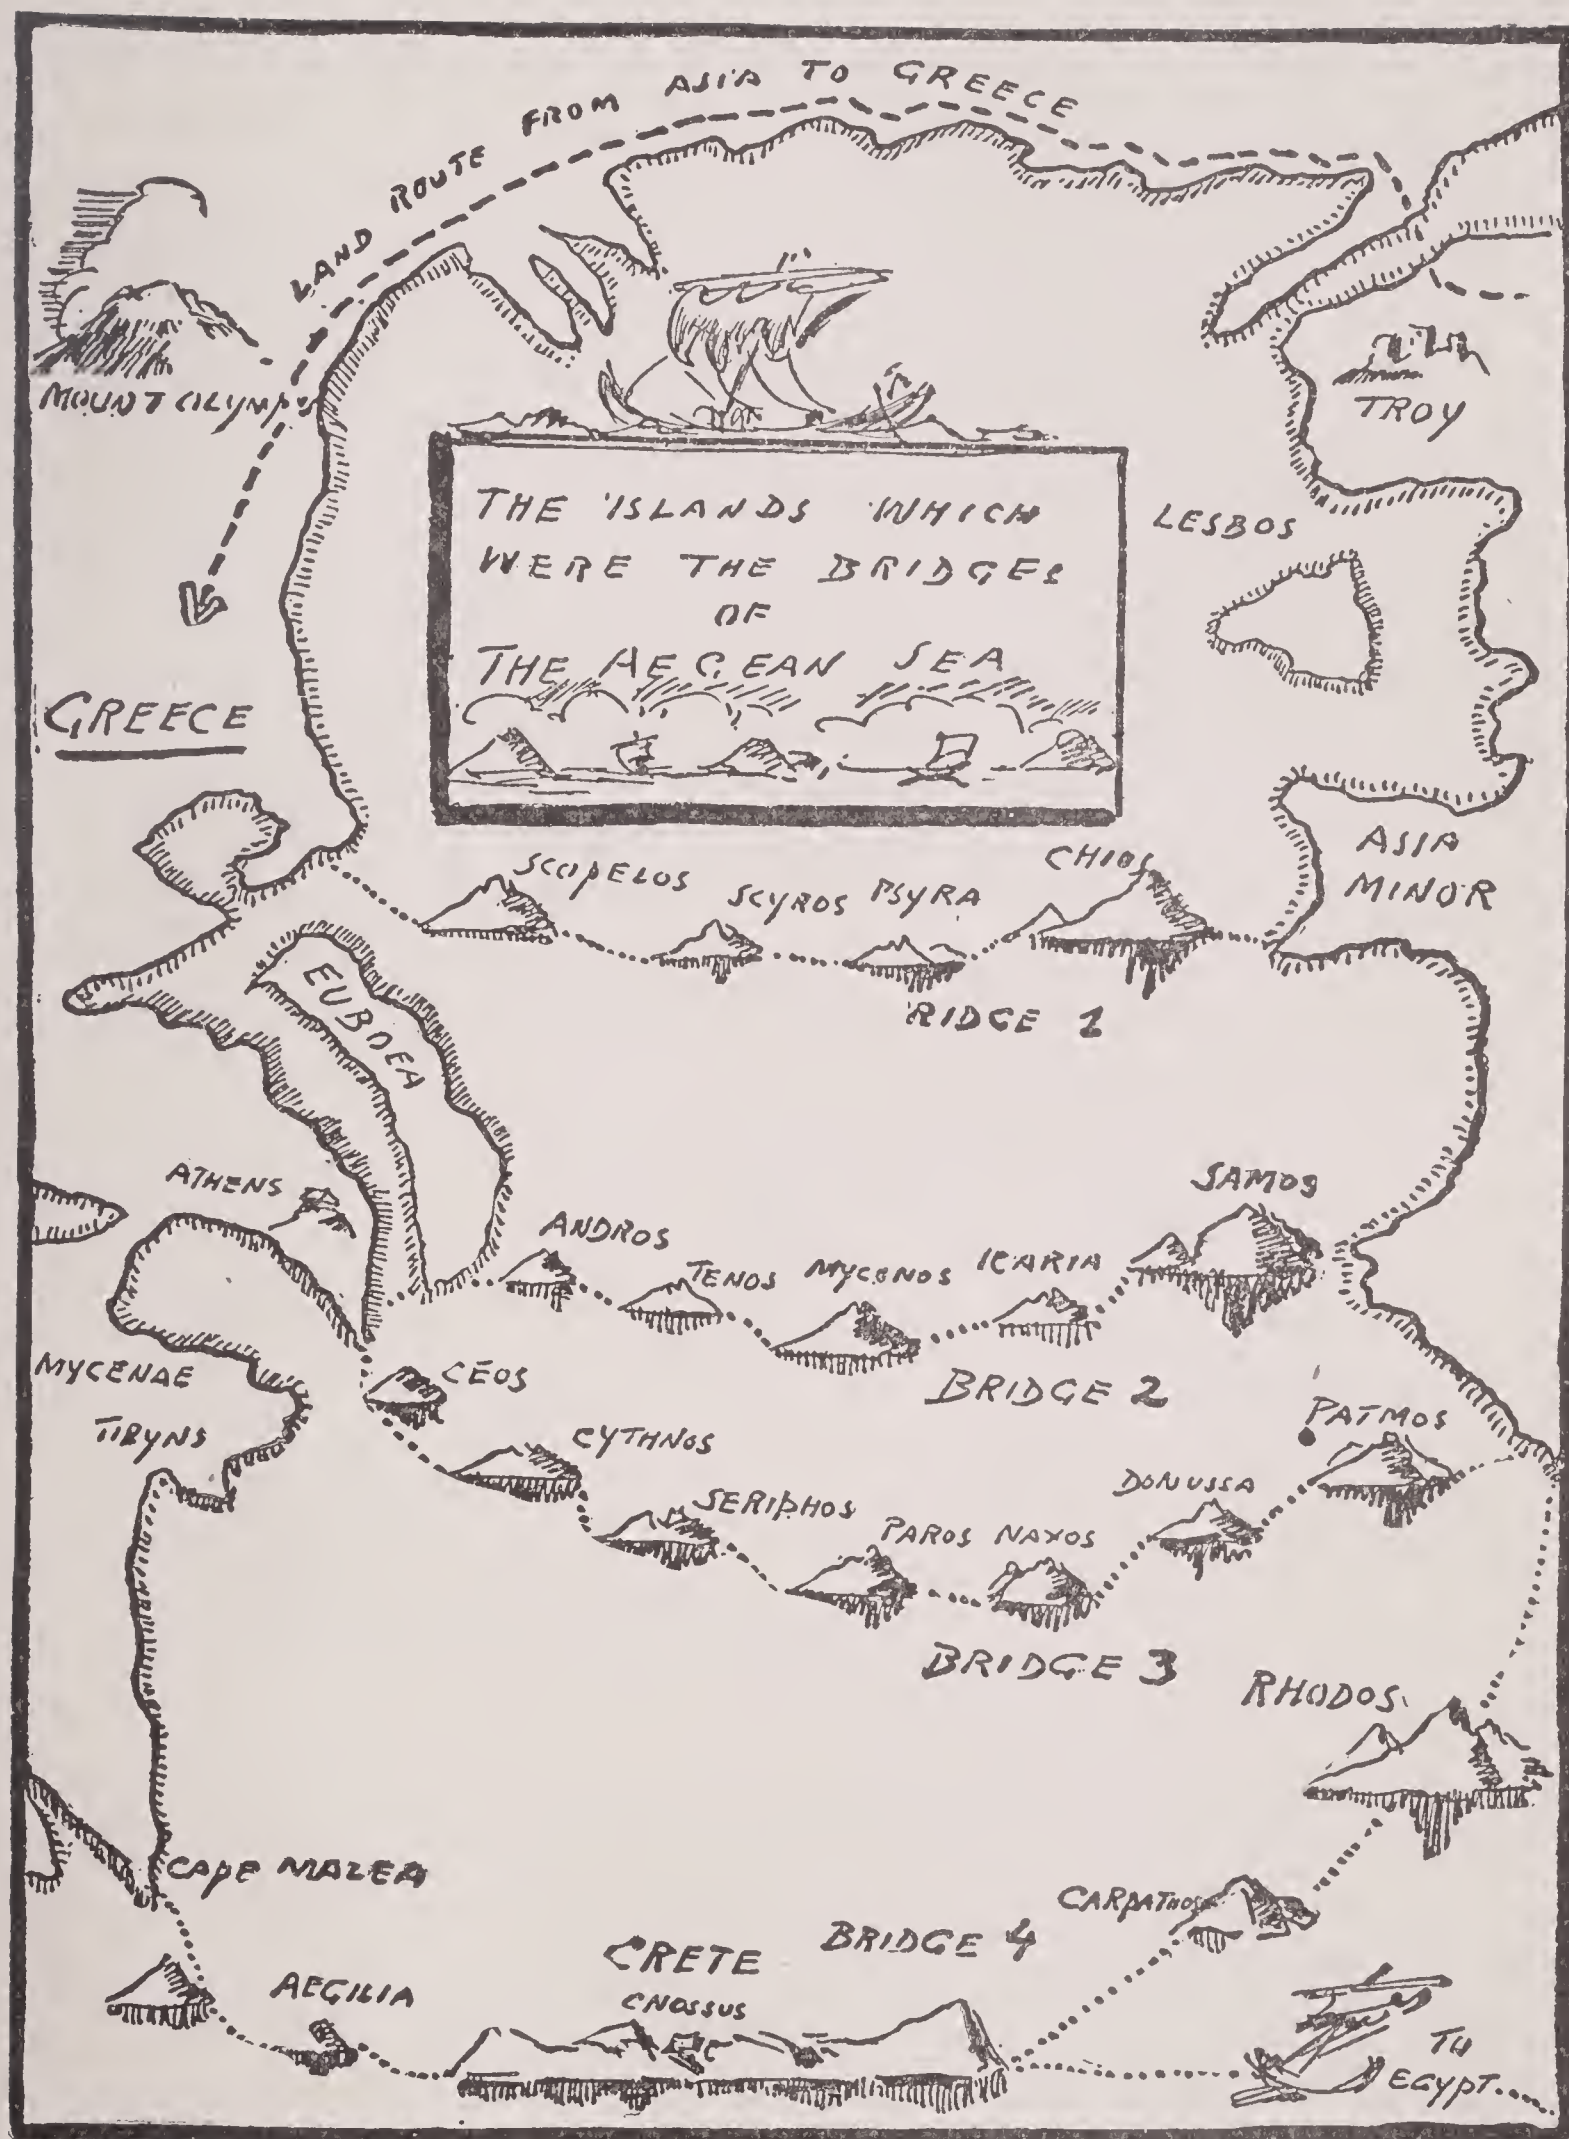 LAND ROUTE FROM ASIA TO GREECE
MOUNT OLYMPUS
TROY
THE ISLANDS WHICH
WERE THE BRIDGES
OF
THE AEGEAN SEA
LESBOS
GREECE
ASIA
MINOR
SCOPELOS
SCYROS
PSYRA
CHIOS
RIDGE 1
EUBOEA
ATHENS
ANDROS
TENOS
MYCONOS
ICARIA
SAMOS
BRIDGE 2
MYCENAE
TIRYNS
CEOS
CYTHNOS
SERIPHOS
PAROS
NAXOS
DONUSSA
PATMOS
BRIDGE 3
RHODOS
CAPE MALEA
AEGILIA
CRETE
CNOSSUS
BRIDGE 4
CARPATHOS
TO
EGYPT